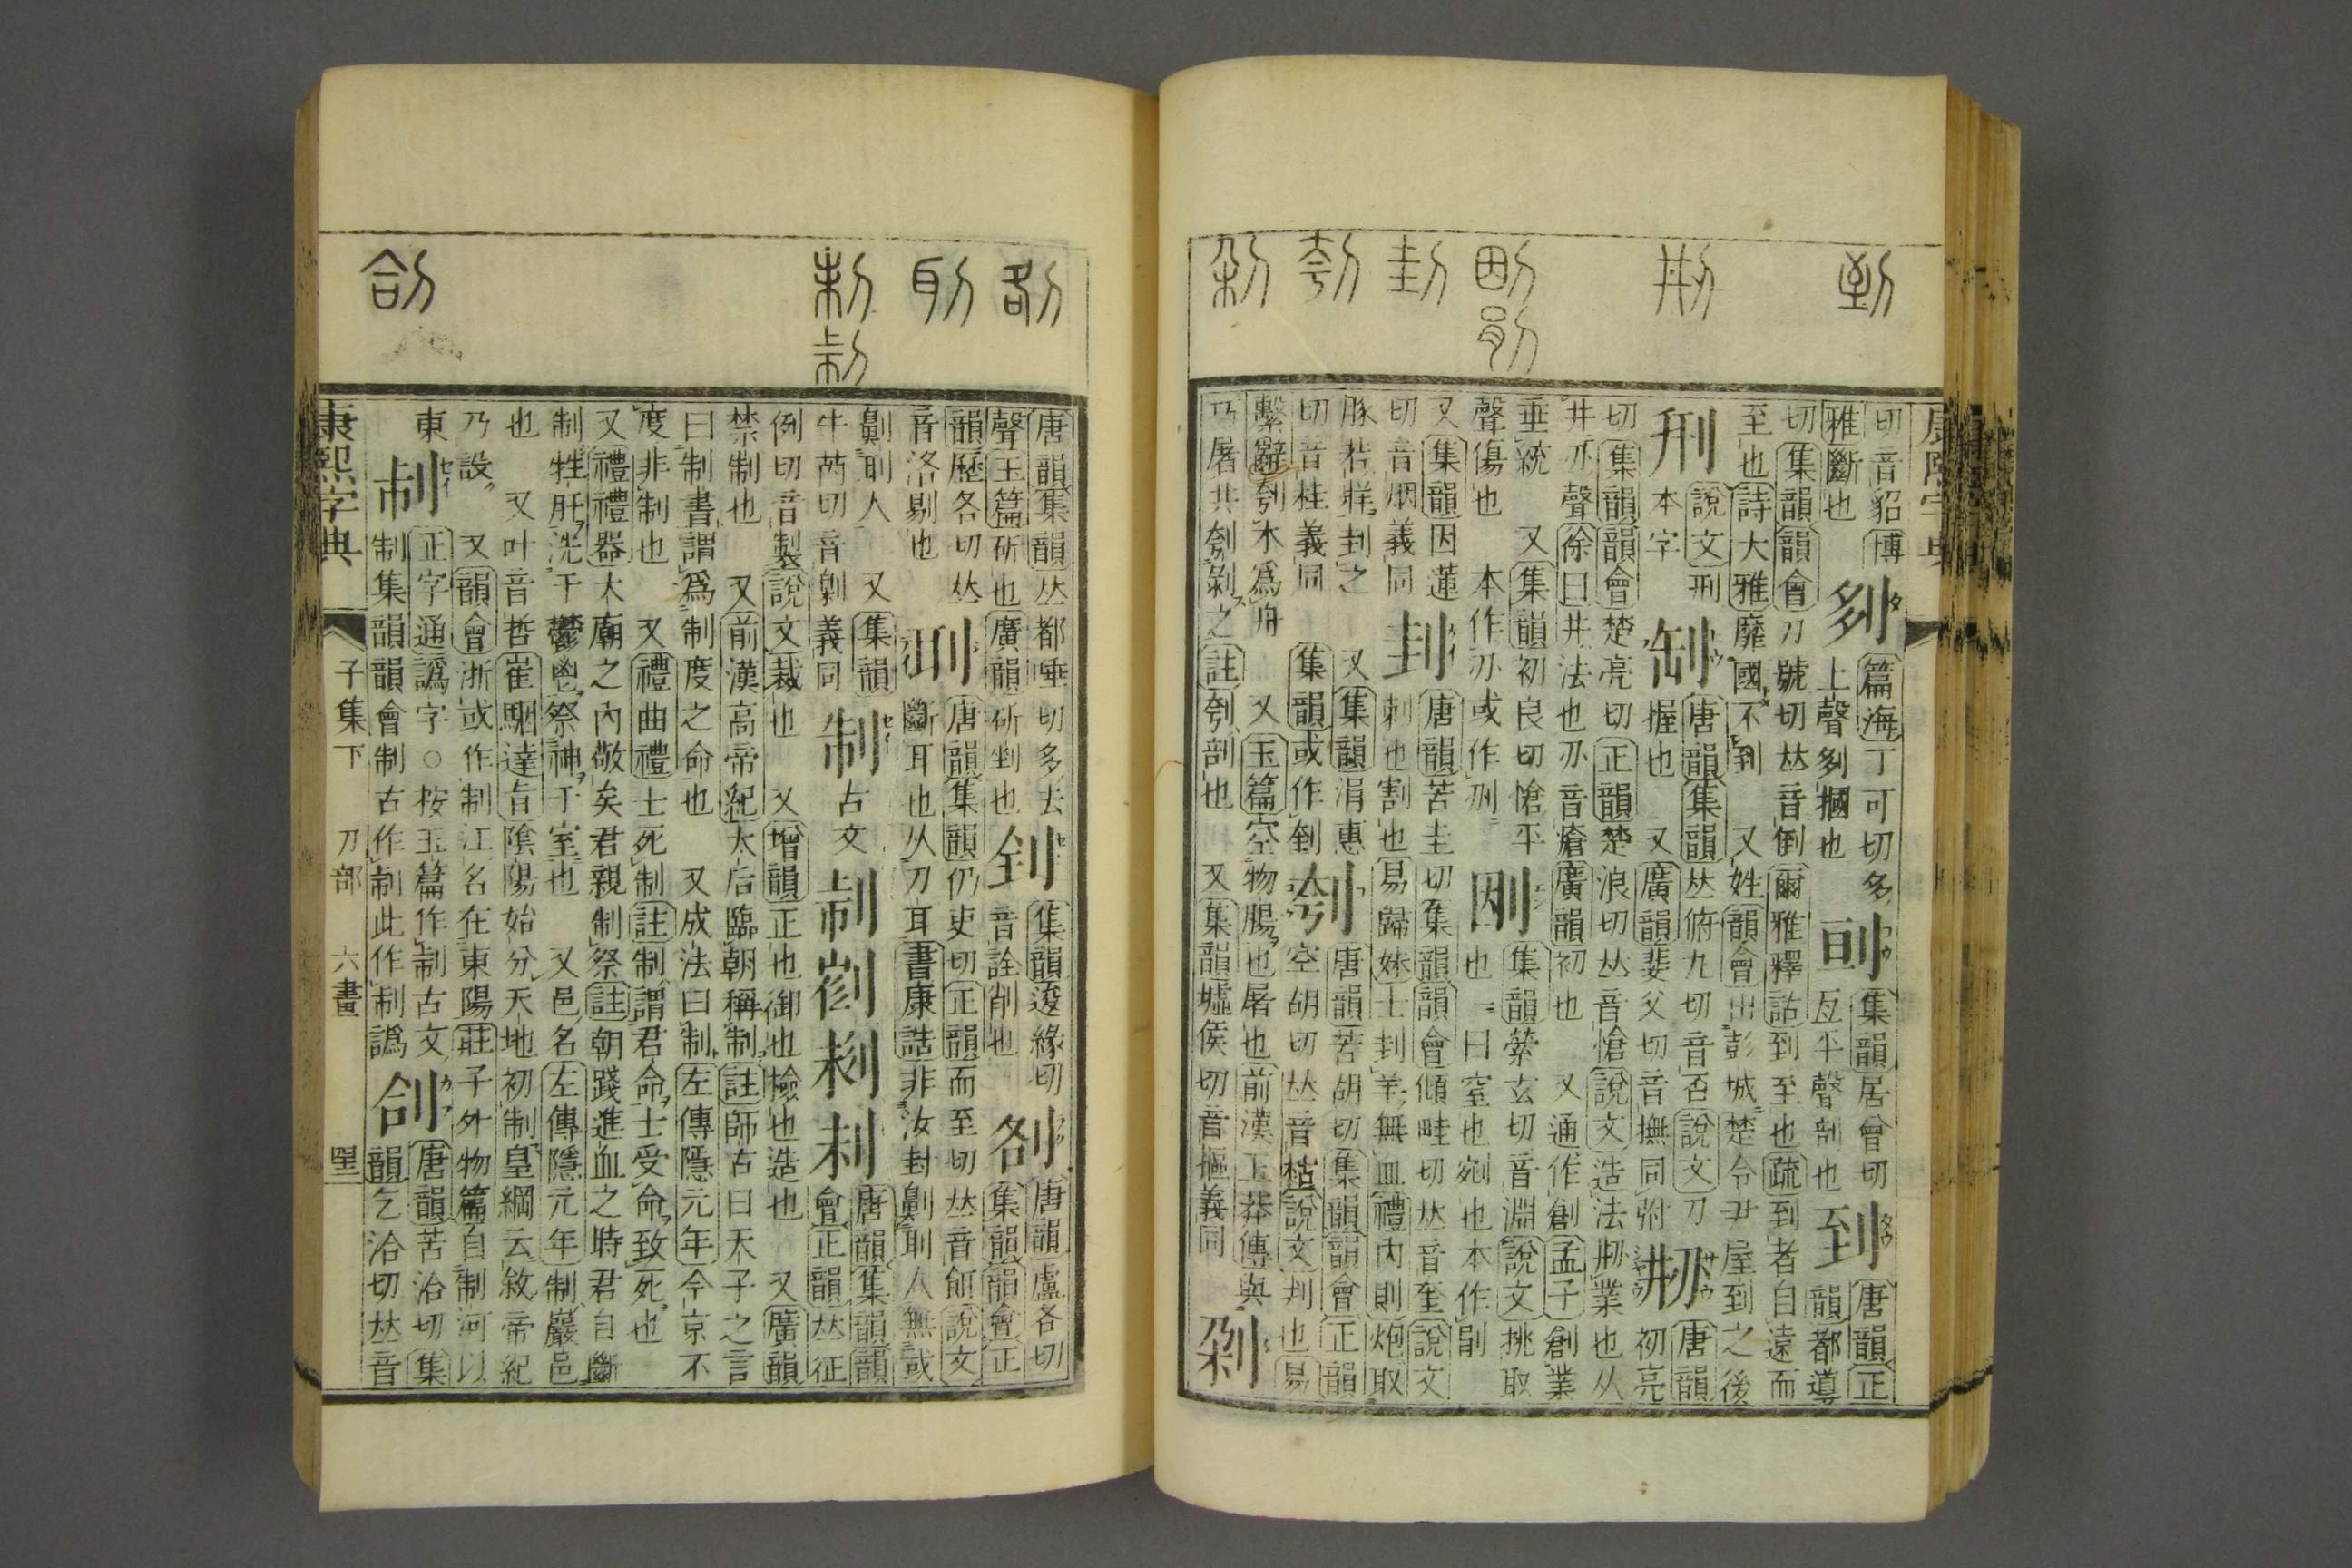 康熙字典
切音貂博
雅斷也
𠛫
篇海丁可切多
上聲
刯
集韻居曾切
亙平聲剖也
到
唐韻正
韻都導
切集韻韻會刀號切𠀤音倒爾雅釋詁到至也疏到者自遠而
至也詩大雅靡國不到 又姓韻會出彭城楚令尹屋到之後
㓝
說文刑
本字
㓡
唐韻集韻𠀤俯九切音否說文刀
握也 又廣韻斐父切音撫同弣
刱
唐韻
初亮
切集韻韻會楚亮切正韻楚浪切𠀤音愴說文造法刱業也从
井刅聲徐曰井法也刅音瘡廣韻初也 又通作創孟子創業
垂統 又集韻初良切愴平
聲傷也 本作刅或作刑
集韻縈玄切音淵說文挑取
也一曰窒也剜也本作剈
又集韻因蓮
切音烟義同
刲
唐韻苦圭切集韻韻會傾畦切𠀤音奎說文
刺也割也易歸妹士刲羊無血禮內則炮取
豚若牂刲之 又集韻涓惠
切音桂義同 集韻或作
刳
唐韻苦胡切集韻韻會正韻
空胡切𠀤音枯說文判也易
繫辭刳木爲舟 又玉篇空物腸也屠也前漢王莽傳與
乃屠共刳剝之註刳剖也 又集韻墟侯切音摳義同
剁
唐韻集韻𠀤都唾切多去
聲玉篇斫也廣韻斫剉也
集韻逡緣切
音詮削也
㓢
唐韻盧各切
集韻韻會正
韻歷各切𠀤
音洛剔也
刵
唐韻集韻仍吏切正韻而至切𠀤音餌說文
斷耳也从刀耳書康誥非汝封劓刵人無或
劓刵人 又集韻
牛芮切音劓義同
制
古文
唐韻集韻韻
會正韻𠀤征
例切音製說文裁也 又增韻正也御也檢也造也 又廣韻
禁制也 又前漢高帝紀太后臨朝稱制註師古曰天子之言
曰制書謂爲制度之命也 又成法曰制左傳隱元年今京不
度非制也 又禮曲禮士死制註制謂君命士受命致死也
又禮禮器太廟之內敬矣君親制祭註朝踐進血之時君自斷
制牲肝洗于鬱鬯祭神于室也 又邑名左傳隱元年制巖邑
也 又叶音哲崔駰達旨陰陽始分天地初制皇綱云敘帝紀
乃設 又韻會浙或作制江名在東陽莊子外物篇自制河以
東
正字通譌字○按玉篇作制古文
制集韻韻會制古作制此作制譌
㓣
唐韻苦洽切集
韻乞洽切𠀤音
康熙字典
子集下 刀部 六畫